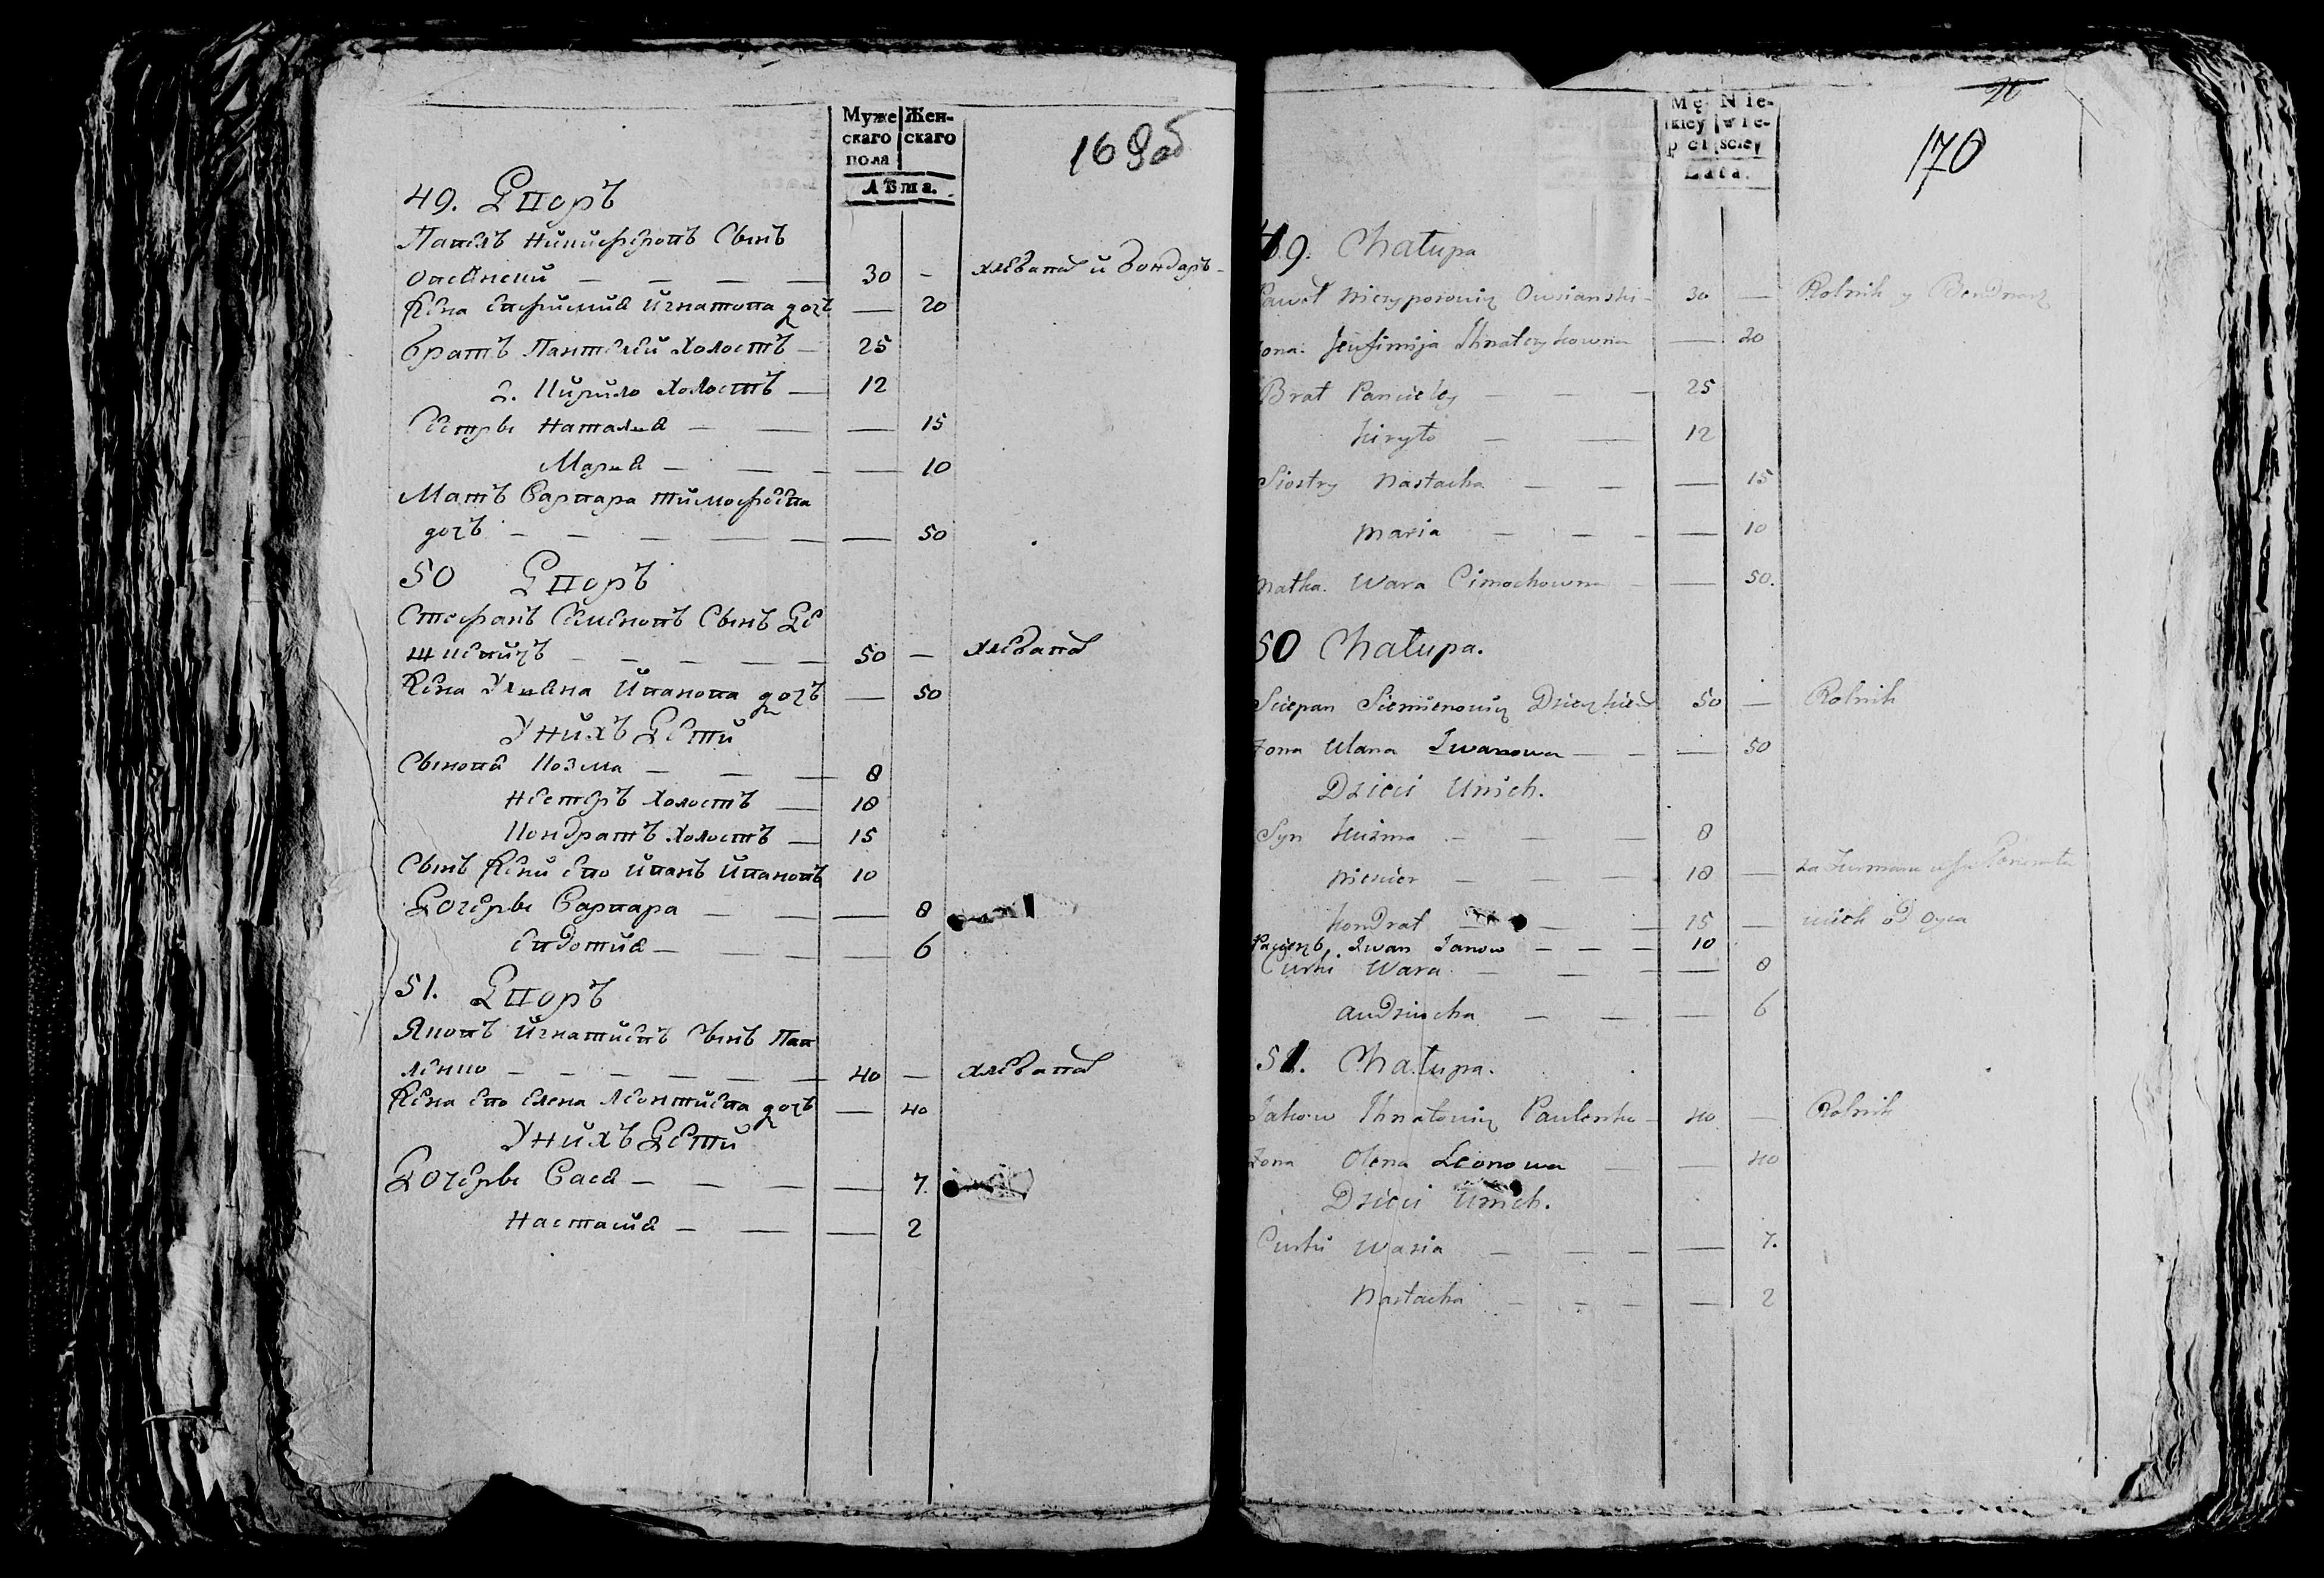 Муже Жен-
скаго скаго
пола
Лѣта.
169 об
49. Дворъ
Павелъ Никифоровъ Сынъ
Овсянски — — — — 30 — хлебопа и бондаръ
Жена Евфимия Игнатова дочъ — 20
братъ Пантелей холостъ — 25
2. Кирило холостъ — 12
Сестры Наталия — — — 15
Мария — — — 10
Матъ Варвара тимофеева
дочъ — — — — — — 50
50 Дворъ
Стефанъ Семеновъ Сынъ Де
шкевичъ — — — — 50 — хлебопа
Жена Улияна Иванова дочъ — 50
У нихъ Дети
Сынова Козма — — — 8
Нестеръ холостъ — 18
Кондратъ холостъ — 15
Сынъ Жени ево Иванъ Ивановъ 10
Дочеры Варвара — — — 8
Евдотия — — — — 6
51. Дворъ
Яковъ Игнатиевъ Сынъ Пав
ленко — — — — — — 40 — хлебопа
Жена ево Елена Леонтиева дочъ — 40
У нихъ Дети
Дочеры Вася — — — — 7.
Настасия — — — 2
Mę Nie-
kiey wie-
p ci sciey
Lata.
20
170
49. Chałupa
Paweł Niczyporowicz Owsianski — 30 — Rolnik y Bendnarz
Zona. Jeufimija Ihnatczykowna — 20
Brat Panteley — — — 25
Kiryło — — 12
Siostry Nastacha — — — 15
Maria — — — — 10
Matka. Wara Cimochowna — — 50.
50 Chałupa.
Sciepan Siemienowicz 50 — Rolnik
Zona Ulana Iwanowa — — — 50
Dzieci Unich.
Syn Kuźma — — — 8
Niescier — — — 18 —
Kondrat — — — 15 — nich od Oyca
Pacierzb. Iwan Janow — — — 10
Curki Wara — — — — 8
Audziucha — — — 6
51. Chałupa.
Jakow Ihnatowicz Paulenko — 40 — Rolnik
Zona Olena Leonowa — — 40
Dzieci Unich.
Curki Wasia — — — — 7.
Nastacha — — — — 2